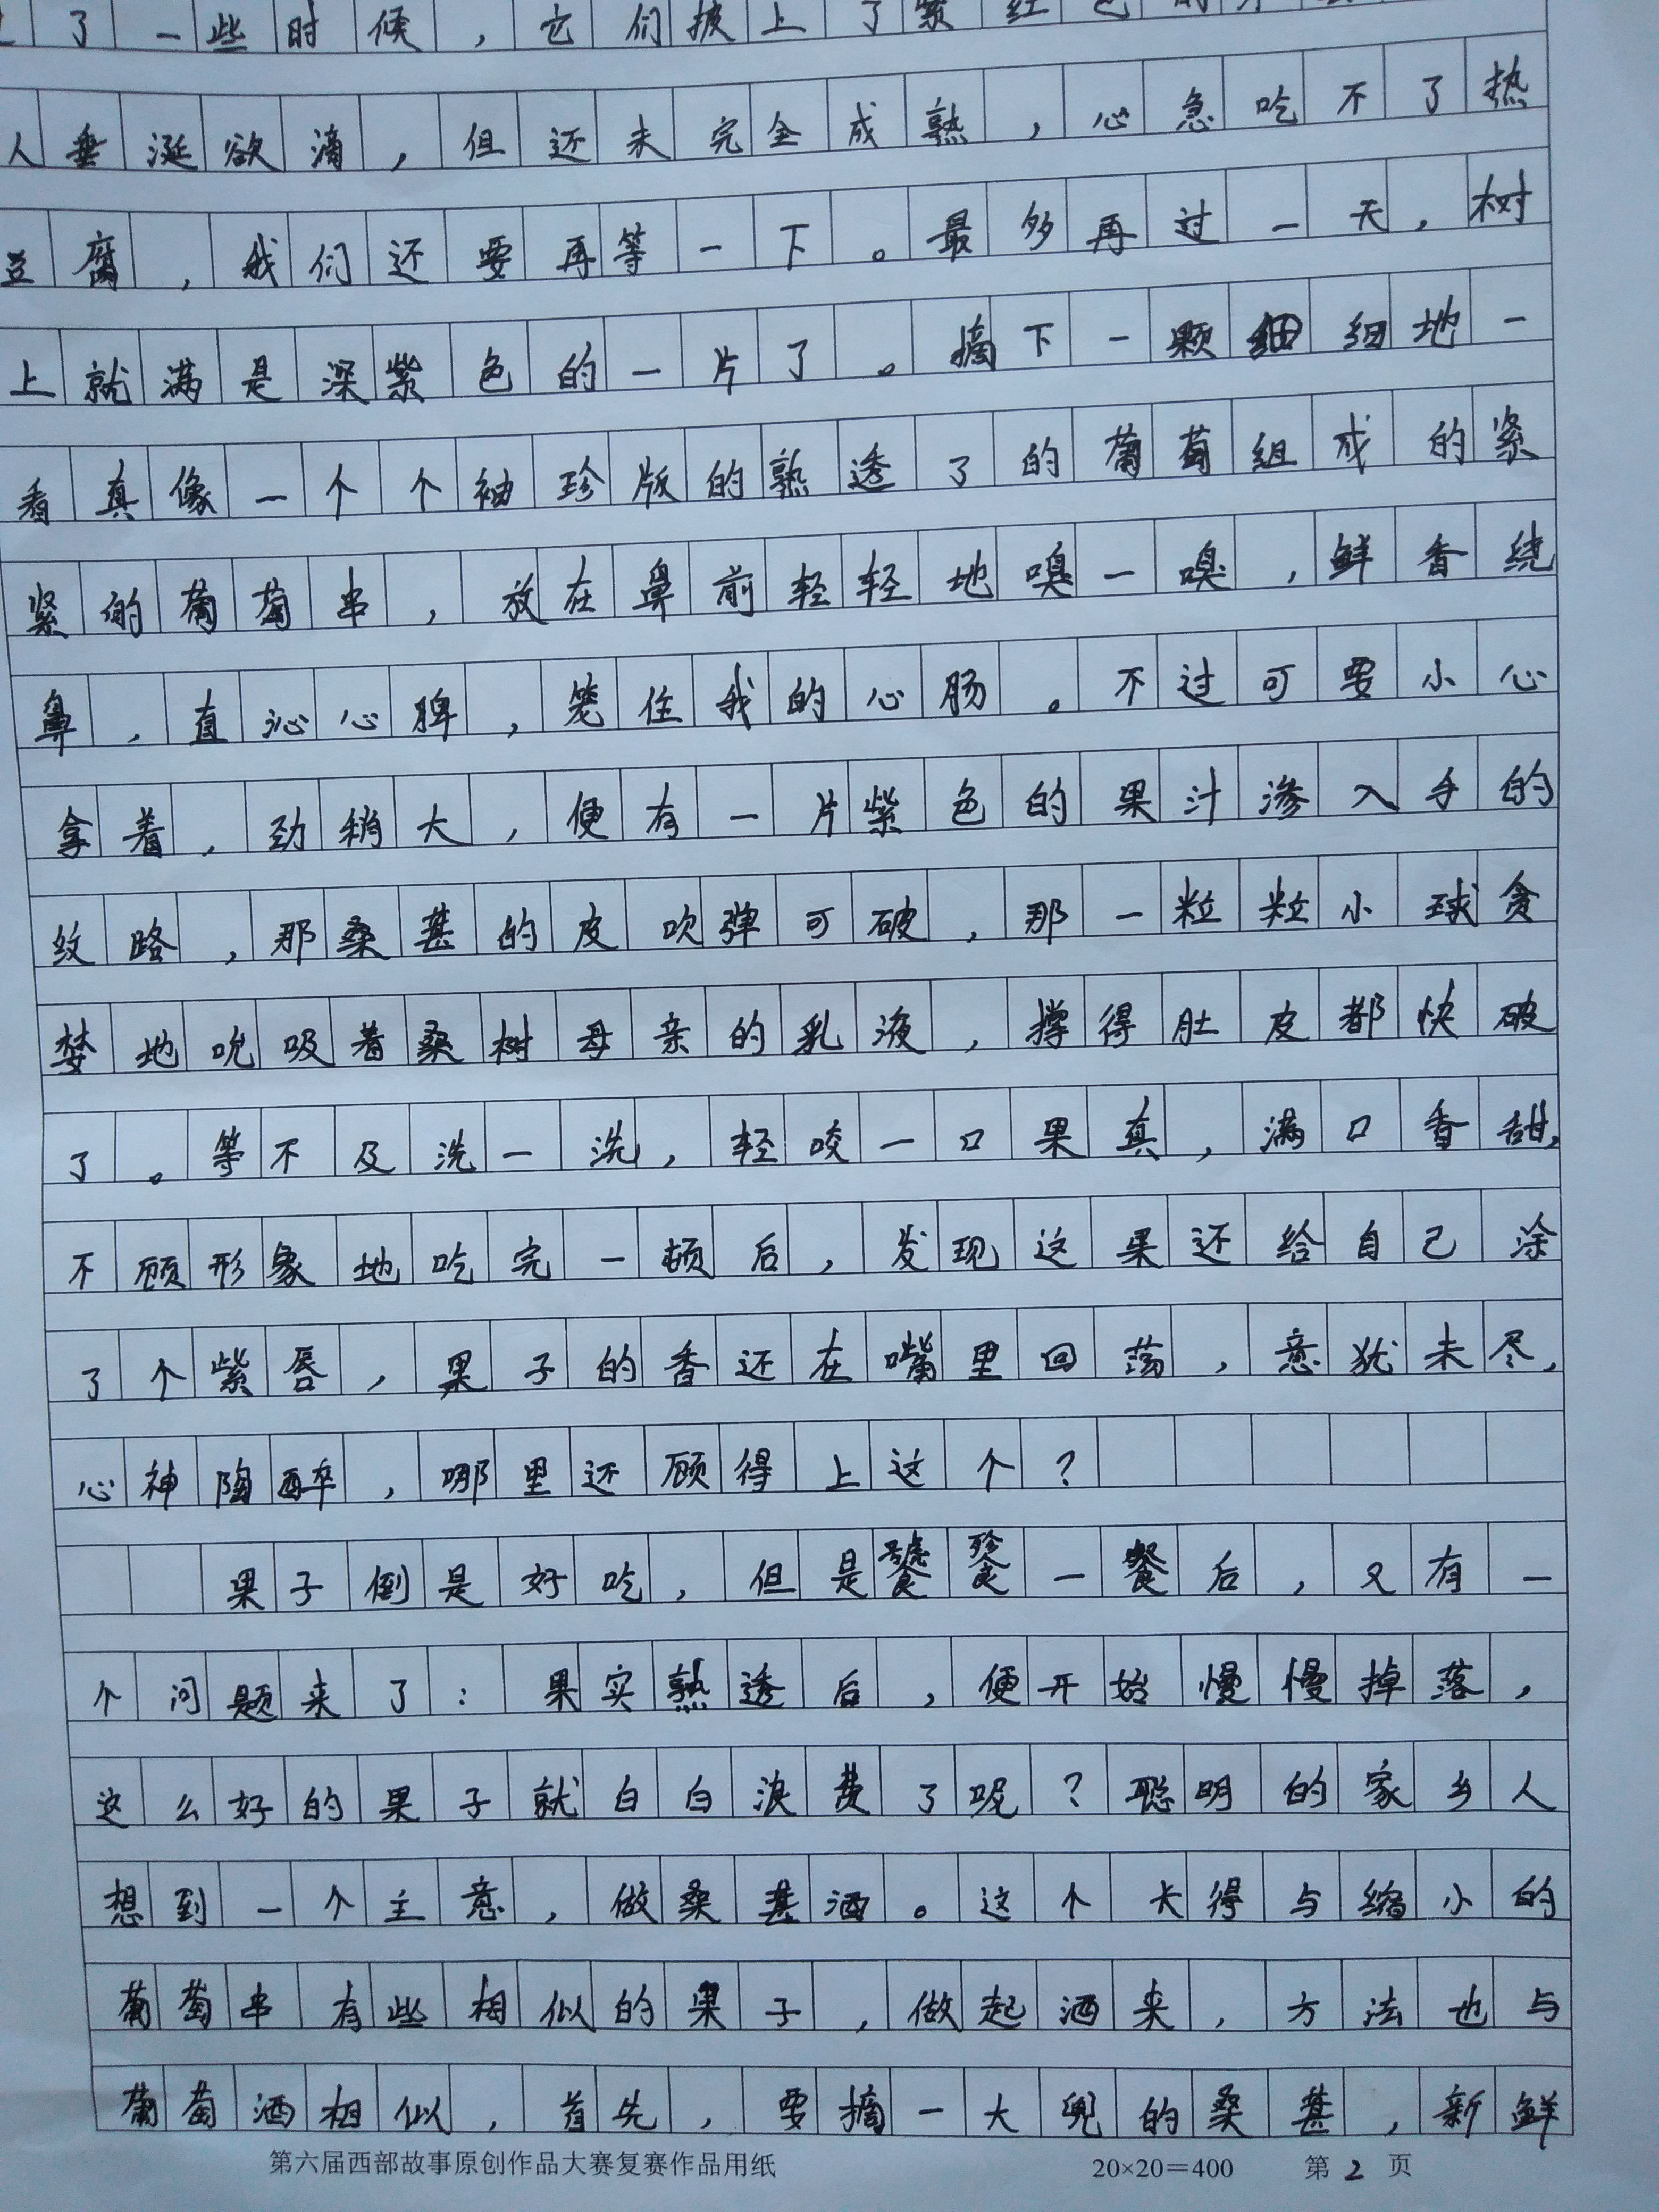 了一些时候，它们披上了紫红色的
人垂涎欲滴，但还未完全成熟，心急吃不了热
豆腐，我们还要再等一下。最多再过一天，树
上就满是深紫色的一片了。摘下一颗细细地一
看真像一个个袖珍版的熟透了的葡萄组成的紧
紧的葡萄串，放在鼻前轻轻地嗅一嗅，鲜香绕
鼻，直沁心脾，笼住我的心肠。不过可要小心
拿着，劲稍大，便有一片紫色的果汁渗入手的
纹路，那桑葚的皮吹弹可破，那一粒粒小球贪
婪地吮吸着桑树母亲的乳液，撑得肚皮都快破
了。等不及洗一洗，轻咬一口果真，满口香甜，
不顾形象地吃完一顿后，发现这果还给自己涂
了个紫唇，果子的香还在嘴里回荡，意犹未尽，
心神陶醉，哪里还顾得上这个？
果子倒是好吃，但是饕餮一餐后，又有一
个问题来了：果实熟透后，便开始慢慢掉落，
这么好的果子就白白浪费了呢？聪明的家乡人
想到一个主意，做桑葚酒。这个长得与缩小的
葡萄串有些相似的果子，做起酒来，方法也与
葡萄酒相似，首先，要摘一大兜的桑葚，新鲜
第六届西部故事原创作品大赛复赛作品用纸 20×20＝400 第2页